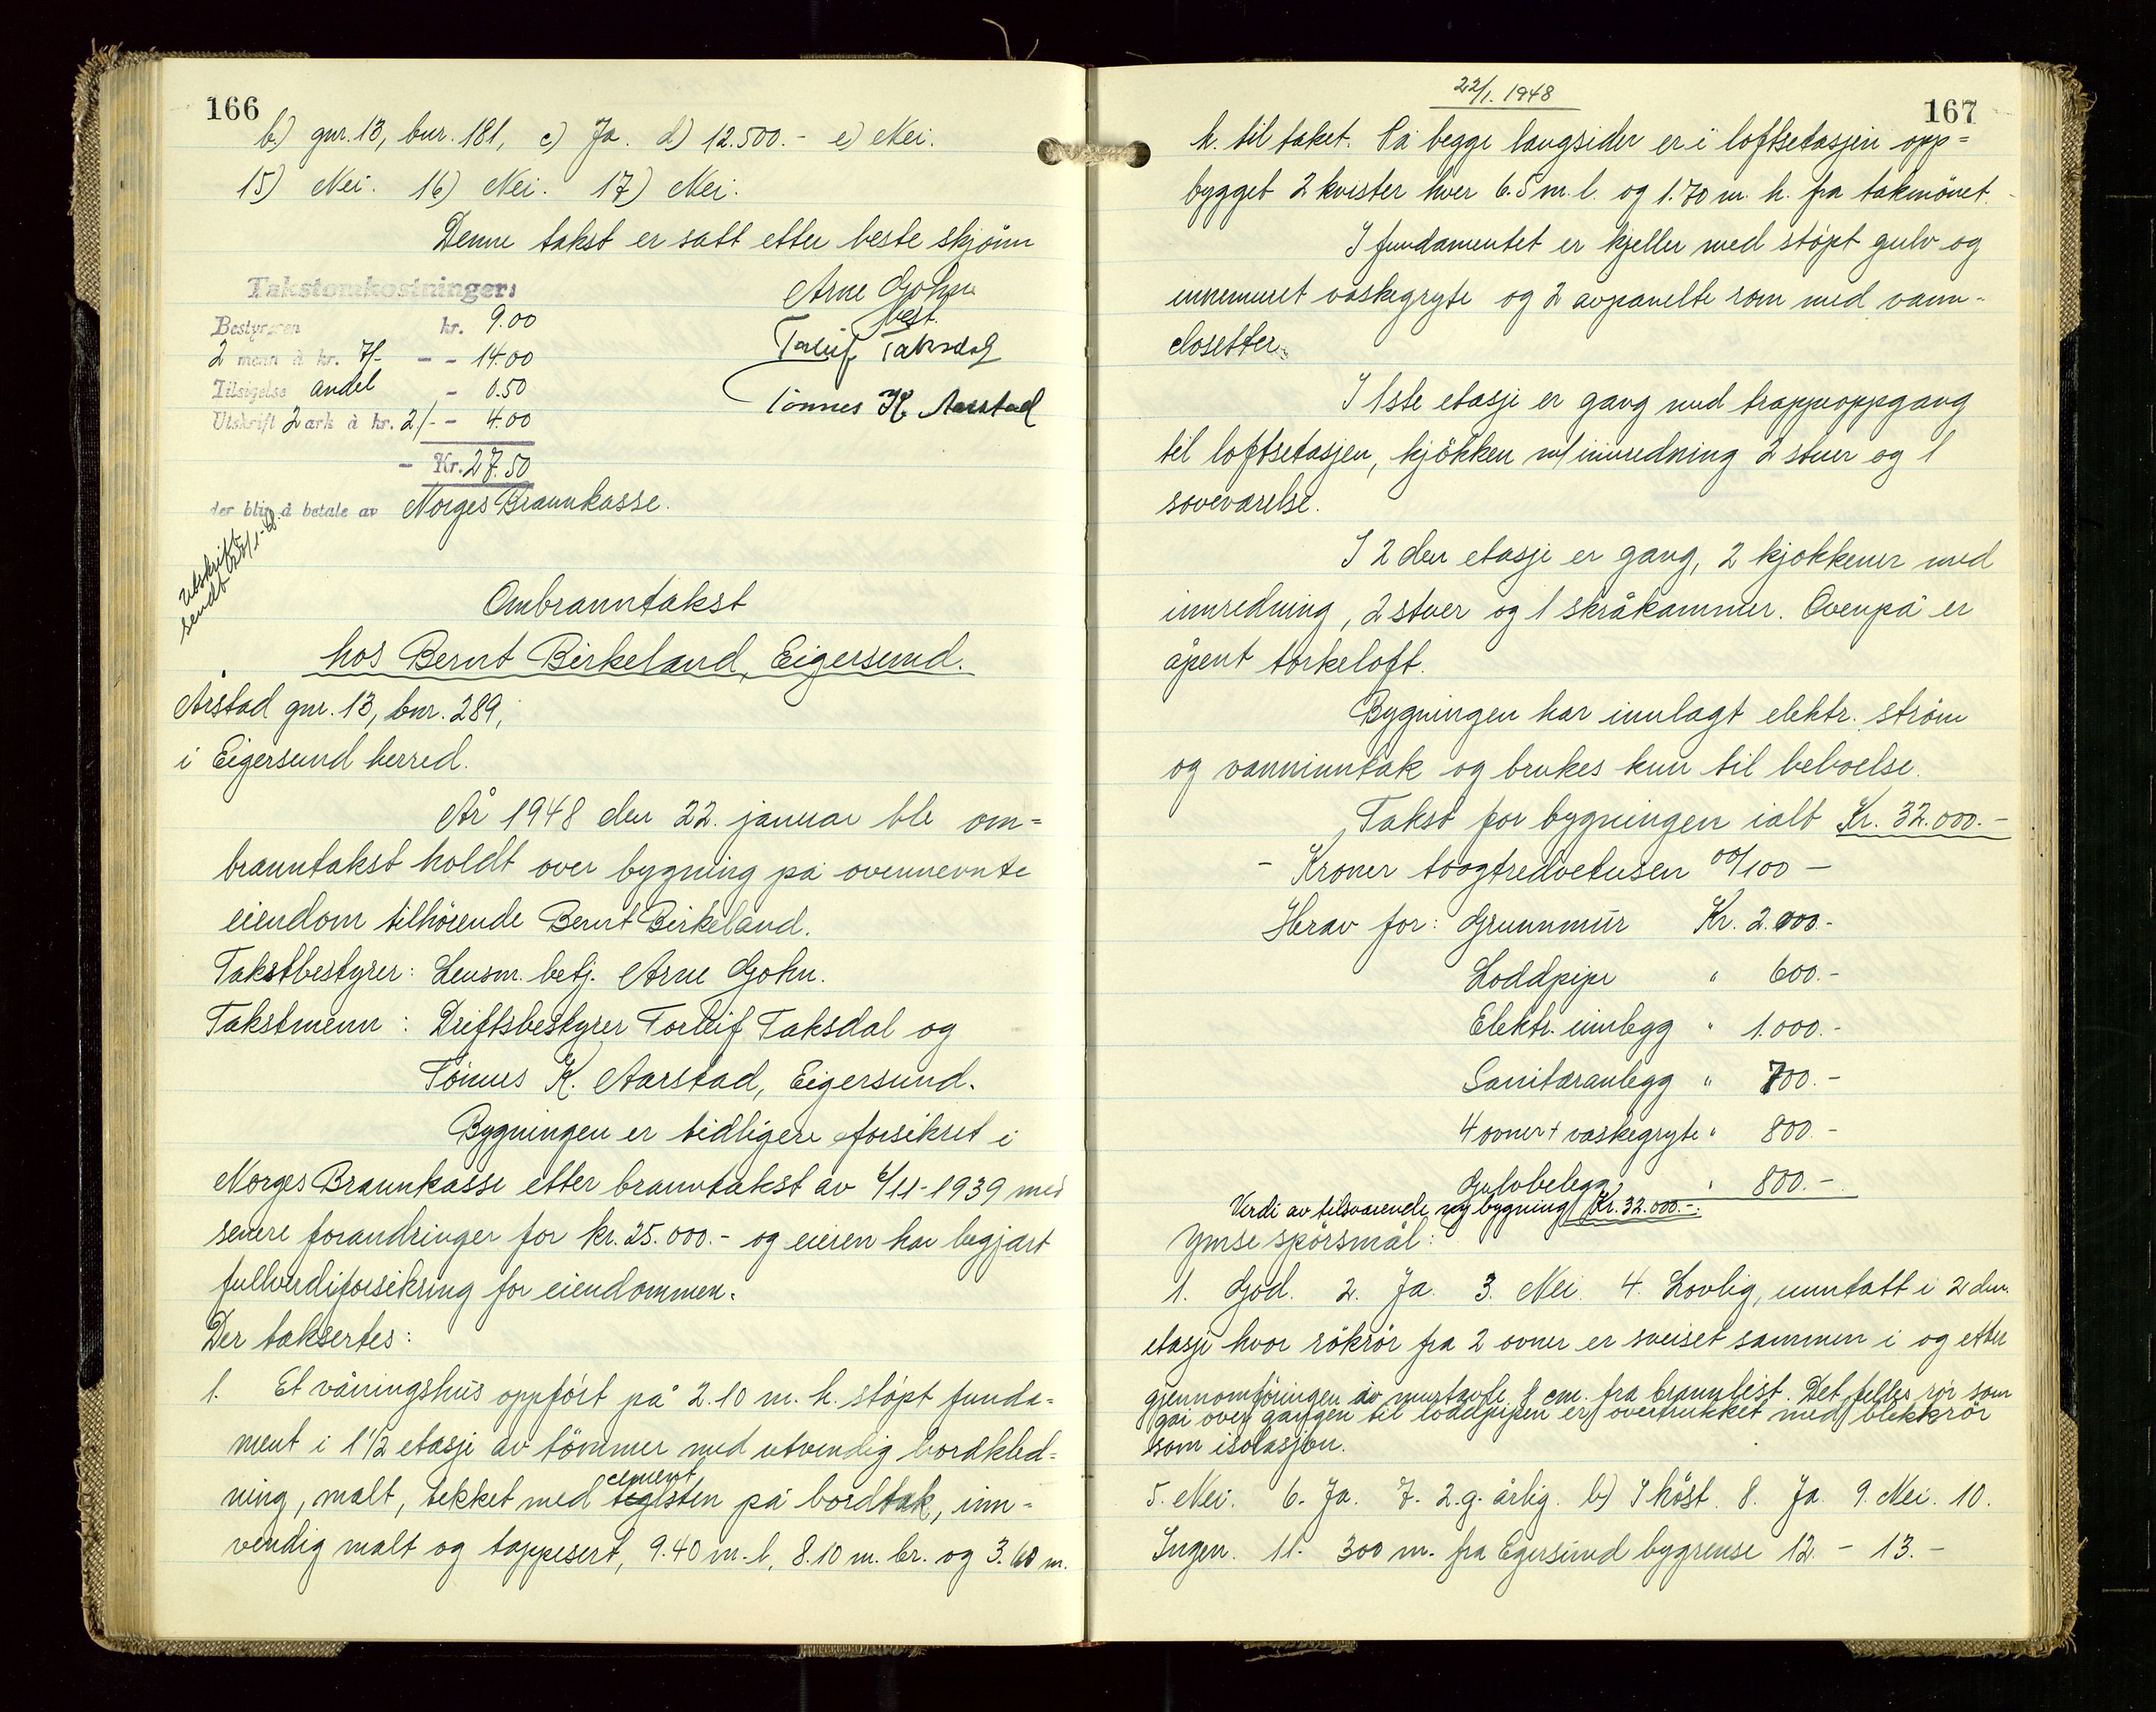 166
b.) gnr. 13, bnr. 181, c) Ja. d) 12.500.- e) Nei.
15) Nei. 16) Nei. 17) Nei.
Denne takst er satt etter beste skjönn
Takstomkostninger:
Bestyreren kr. 9.00
2 menn à kr. 7/- - - 14.00
Tilsigelse andel - 0.50
Utskrift 2 ark à kr. 2/- - 4.00
- Kr. 27.50
der blir å betale av Norges Brannkasse.
Arne Gohn
best.
Torleif Taksdal
Tönnes K. Aarstad
Utskrift
sendt 28/1-48.
Ombranntakst
hos Bernt Birkeland, Eigersund.
Årstad gnr. 13, bnr. 289,
i Eigersund herred.
År 1948 den 22. januar ble om=
branntakst holdt over bygning på ovennevnte
eiendom tilhörende Bernt Birkeland.
Takstbestyrer: Lensm. betj. Arne Gohn.
Takstmenn: Driftsbestyrer Torleif Taksdal og
Tönnes K. Aarstad, Eigersund.
Bygningen er tidligere forsikret i
Norges Brannkasse etter branntakst av 6/11-1939 med
senere forandringer for kr. 25.000.- og eieren har begjært
fullverdiforsikring for eiendommen.
Der taksertes:
1. Et våningshus oppfört på 2.10 m. h. stöpt funda=
ment i 1 1/2 etasje av tömmer med utvendig bordkled=
cement
ning, malt, tekket med teglsten på bordtak, inn-
vendig malt og tappesert, 9.40 m. l, 8.10 m. br. og 3.60 m.
22/1. 1948
167
h. til taket. På begge langsider er i loftsetasjen opp=
bygget 2 kvister hver 6.5 m. l. og 1.70 m. h. fra takmönet.
I fundamentet er kjeller med stöpt gulv og
innemuret vaskegryte og 2 avpanelte rom med vann-
closetter.
I 1ste etasje er gang med trappeoppgang
til loftsetasjen, kjökken m/ innredning 2 stuer og 1
soveværelse.
I 2den etasje er gang, 2 kjökkener med
innredning, 2 stuer og 1 skråkammer. Ovenpå er
åpent törkeloft.
Bygningen har innlagt elektr. ström
og vanninntak og brukes kun til beboelse.
Takst for bygningen ialt Kr. 32.000.-
- Kroner toogtredvetusen 00/100 -
Herav for: Grunnmur Kr. 2.000.-
Loddpipe " 600.-
Elektr. innlegg " 1.000.-
Sanitæranlegg " 700.-
4 ovner + vaskegryte " 800.-
Gulvbelegg " 800.-
Verdi av tilsvarende ny bygning Kr. 32.000.-.
Ymse spörsmål:
1. God. 2. Ja. 3. Nei. 4. Lovlig, unntatt i 2den.
etasje hvor rökrör fra 2 ovner er sveiset sammen i og etter
gjennomföringen av murtavle 8 cm. fra brannleist. Det felles rör som
går over gangen til loddpipen er overtrukket med blekkrör
som isolasjon.
5. Nei. 6. Ja. 7. 2. g. årlig. b) I höst. 8. Ja 9. Nei. 10.
Ingen. 11. 300 m. fra Egersund bygrense 12. - 13. -